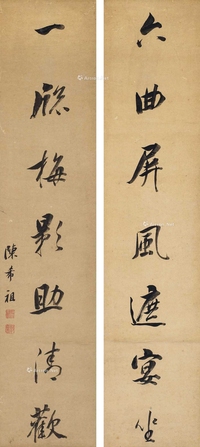 六曲屏風遮宴坐
一窗梅影助清歡
陳希祖